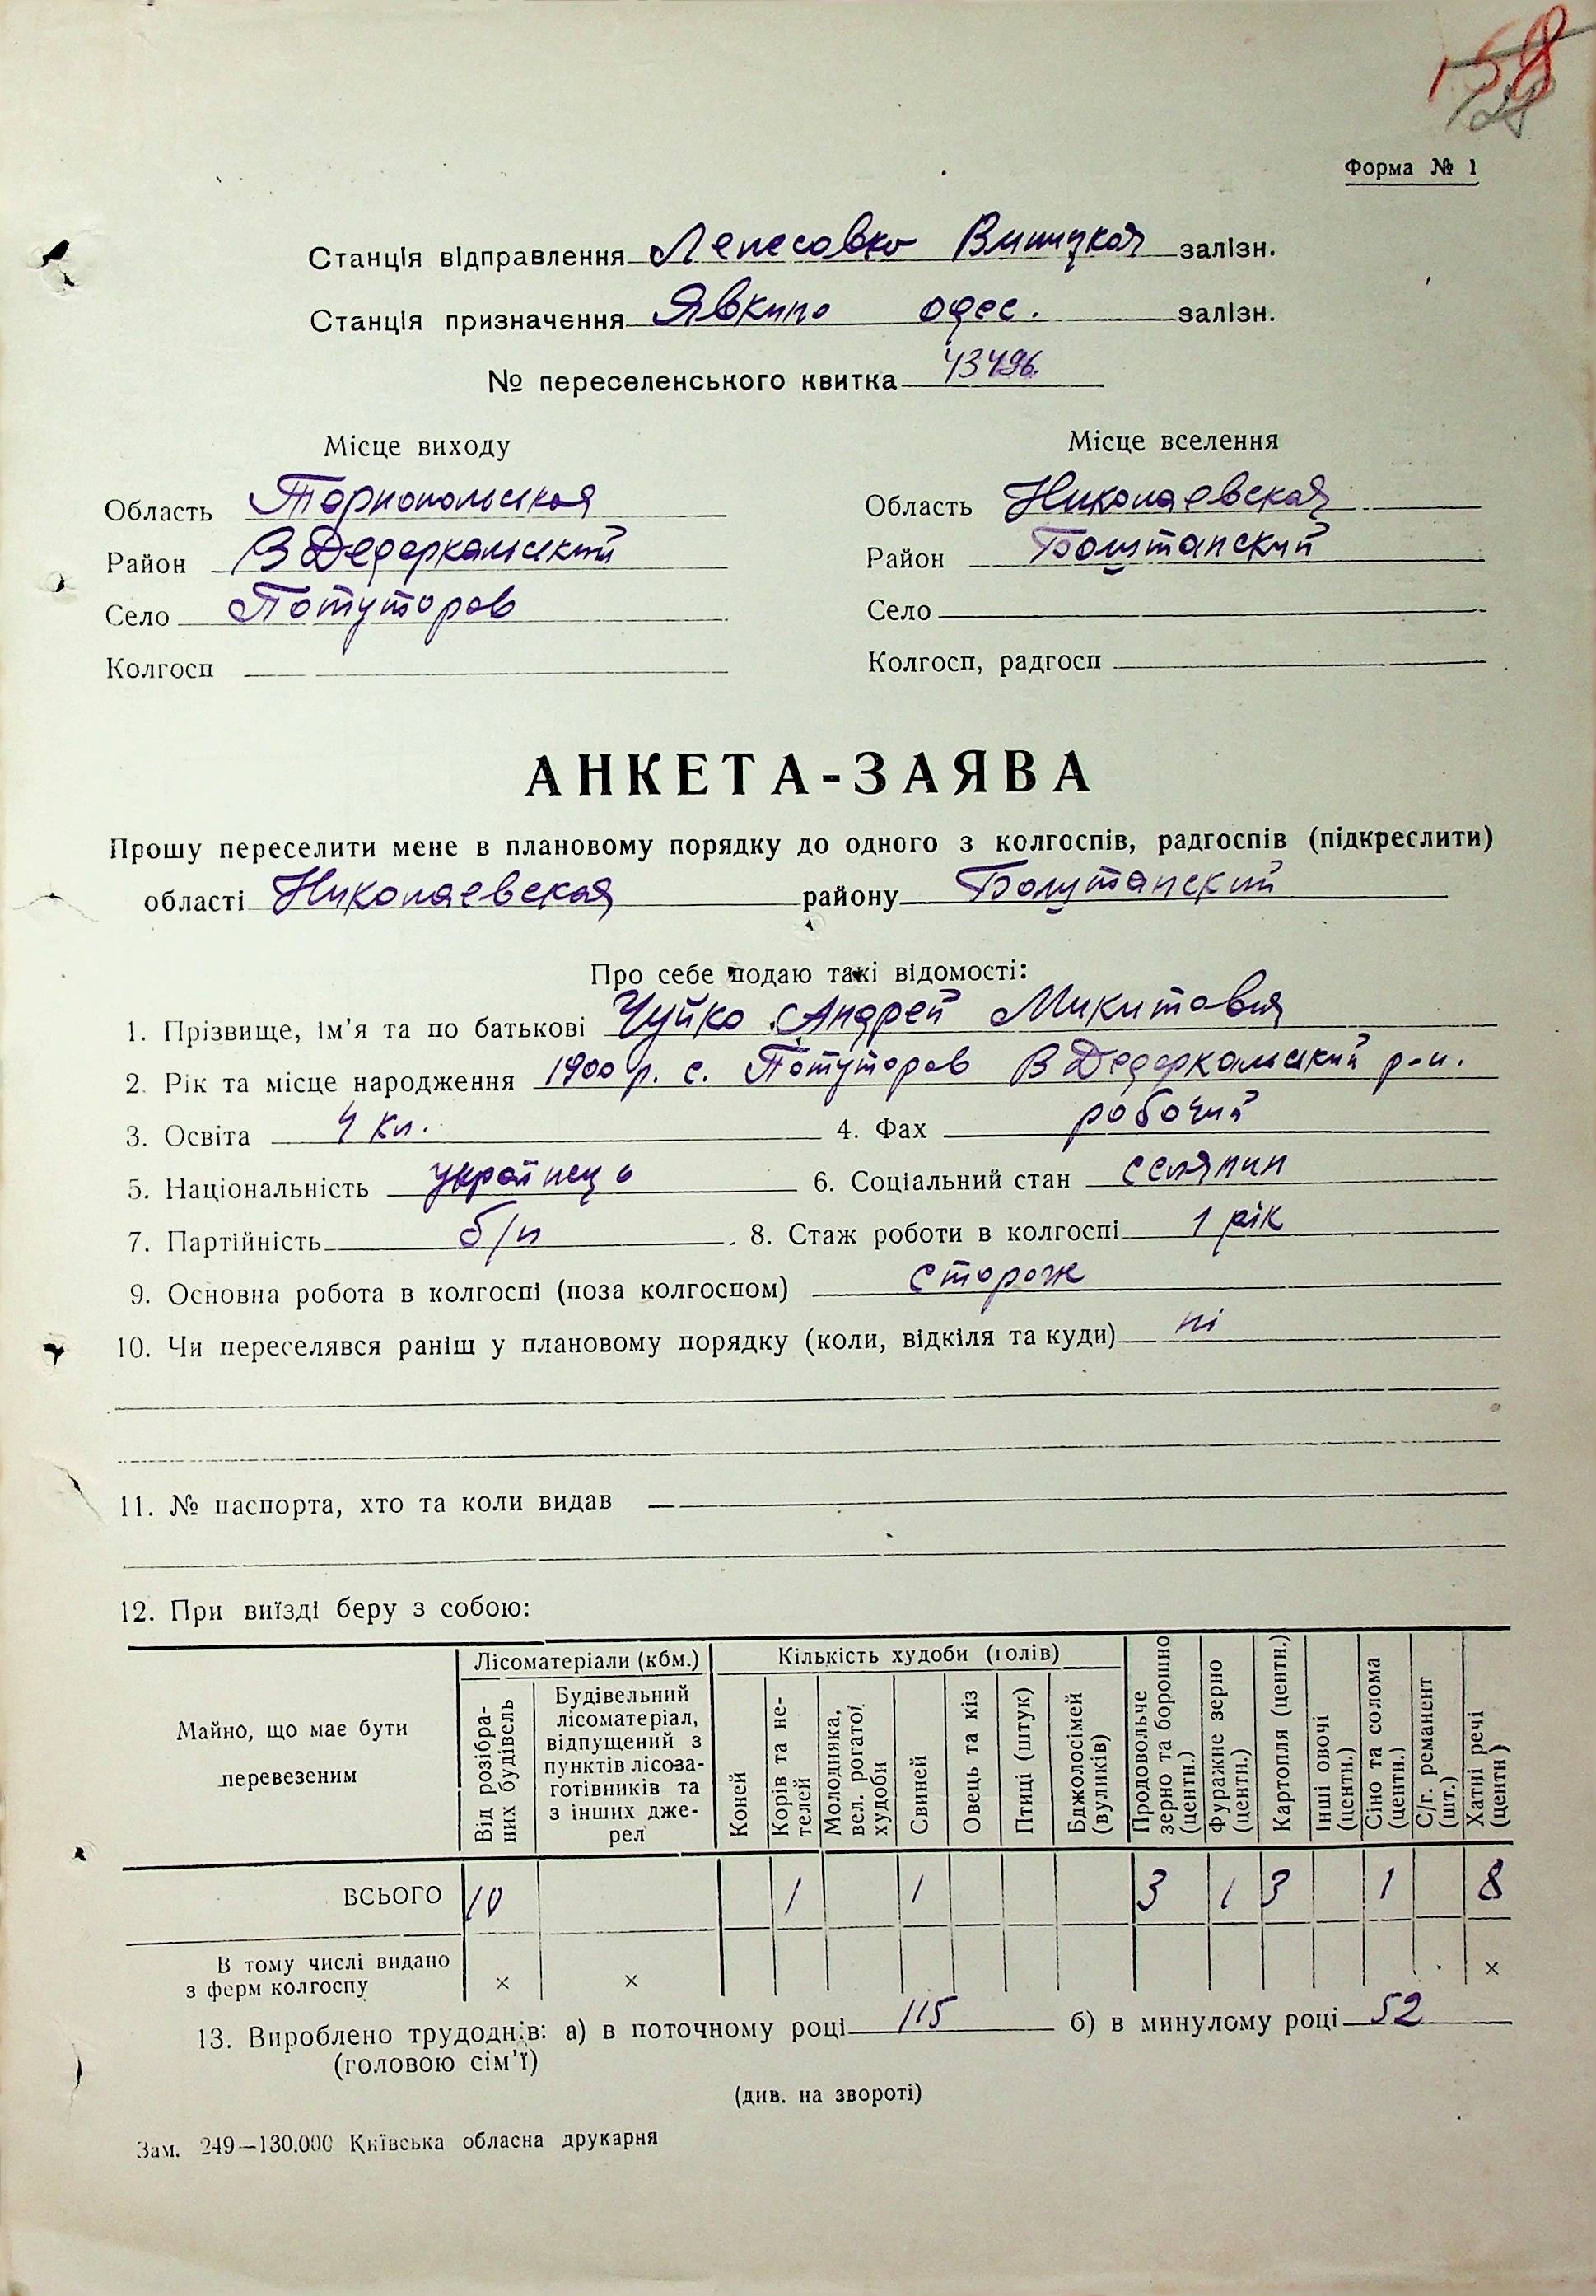 158
Форма № 1
Станція відправлення Лепесовко Виницкая залізн.
Станція призначення Явкино одес. залізн.
№ переселенського квитка 43496.
Місце виходу Місце вселення
Область Тарнопольская Область Николаевская
Район ВДедеркальский Район Боштанский
Село Потуторов Село
Колгосп Колгосп, радгосп
АНКЕТА-ЗАЯВА
Прошу переселити мене в плановому порядку до одного з колгоспів, радгоспів (підкреслити)
області Николаевская району Боштанский
Про себе подаю такі відомості:
1. Прізвище, ім'я та по батькові Чуйко Андрей Микитовия
2. Рік та місце народження 1900 р. с. Потуторов ВДедеркальский р-н.
3. Освіта 4 кл. 4. Фах робочий
5. Національність українець 6. Соціальний стан селянин
7. Партійність б/п 8. Стаж роботи в колгоспі 1 рік
9. Основна робота в колгоспі (поза колгоспом) сторож
10. Чи переселявся раніш у плановому порядку (коли, відкіля та куди) ні
11. № паспорта, хто та коли видав —
12. При виїзді беру з собою:
Майно, що має бути перевезеним
Лісоматеріали (кбм.)
Від розібраних будівель
Будівельний лісоматеріал, відпущений з пунктів лісозаготівників та з інших джерел
Кількість худоби (голів)
Коней
Корів та нетелей
Молодняка, вел. рогатої худоби
Свиней
Овець та кіз
Птиці (штук)
Бджолосімей (вуликів)
Продовольче зерно та борошно (центн.)
Фуражне зерно (центн.)
Картопля (центн.)
Інші овочі (центн.)
Сіно та солома (центн.)
С/г. реманент (шт.)
Хатні речі (центн)
ВСЬОГО 10 1 1 3 1 3 1 8
В тому числі видано з ферм колгоспу × × ×
13. Вироблено трудоднів: а) в поточному році 115 б) в минулому році 52
(головою сім'ї)
(див. на звороті)
Зам. 249—130.000 Київська обласна друкарня